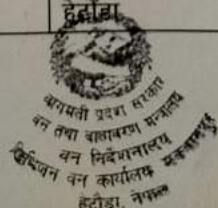 हेटौंडा
बागमती प्रदेश सरकार
वन तथा वातावरण मन्त्रालय
वन निर्देशनालय
डिभिजन वन कार्यालय मकवानपुर
हेटौंडा, नेपाल